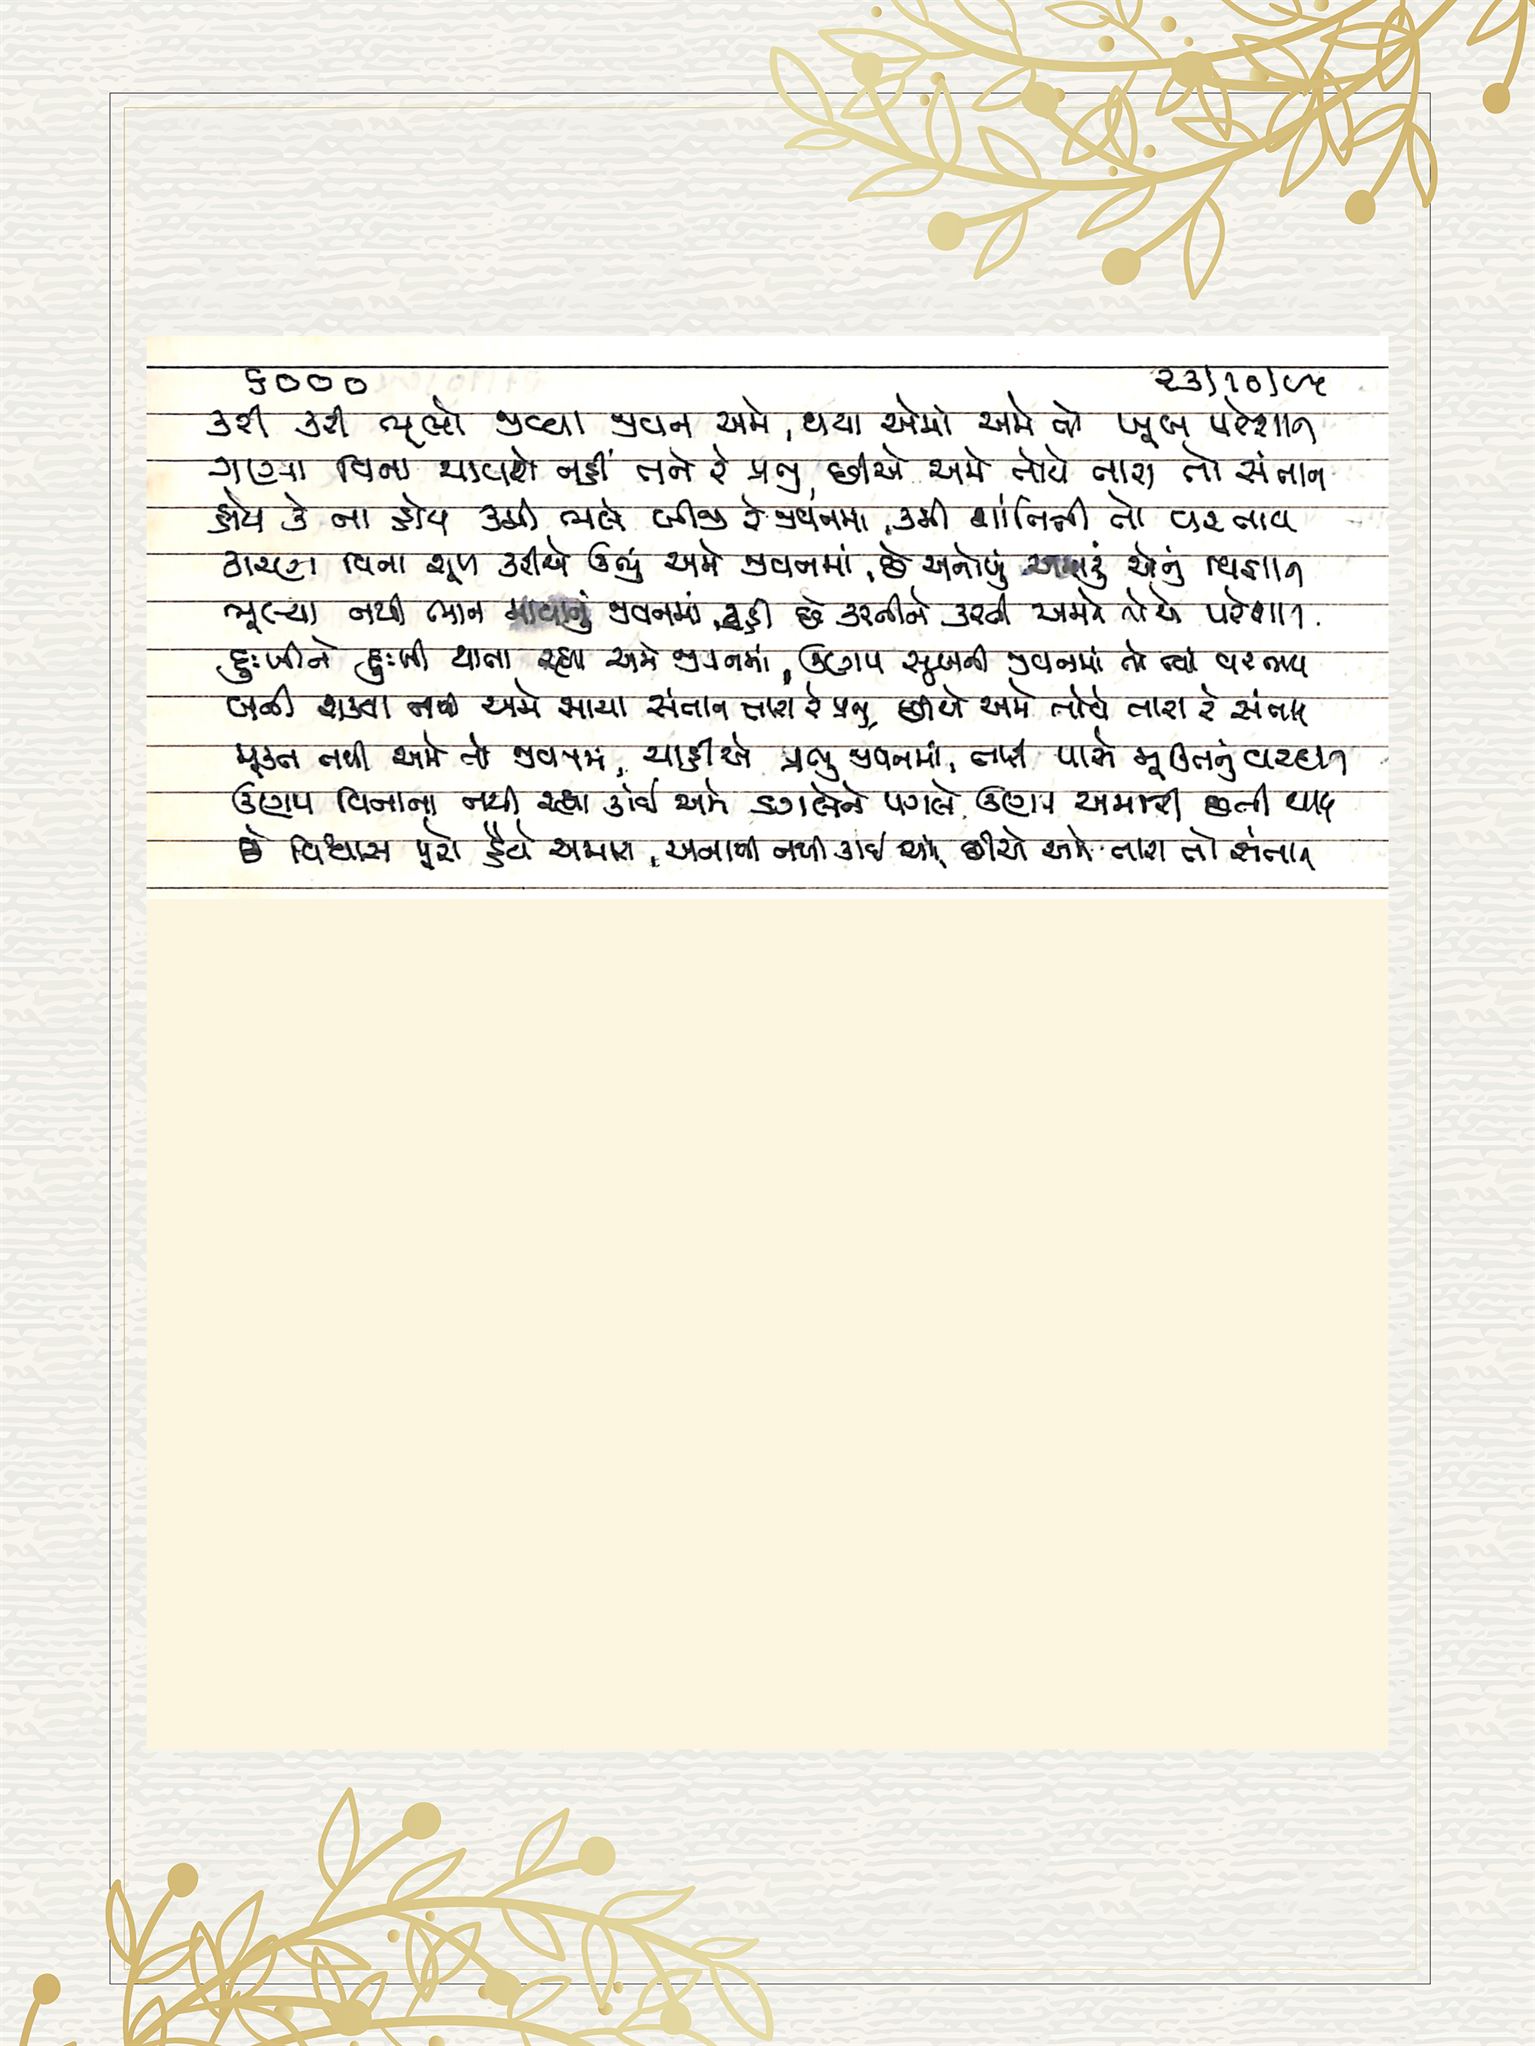 ૬૦૦૦ ૨૩/૧૦/૯૫
કરી કરી ભૂલો જીવ્યા જીવન અમે, થયા એમાં અમે તો ખૂબ પરેશાન
ગણ્યા વિના ચાલશે નહીં તને રે પ્રભુ, છીએ અમે તોયે તારા તો સંતાન
હોય કે ના હોય કમી ભલે બીજી રે જીવનમાં, કમી શાંતિની તો વરતાય
કારણ વિના શૂળ કરીએ ઊભું અમે જીવનમાં, છે અનોખું એનું વિજ્ઞાન
ભૂલ્યા નથી ભાન જીવનમાં, રહી છે કરનીને કરની અમને તોયે પરેશાન.
દુઃખીને દુઃખી થાતા રહ્યા અમે જીવનમાં, ઉણપ સુખની જીવનમાં તો ત્યાં વરતાય
બની શક્યા નથી અમે સાચા સંતાન તારા રે પ્રભુ, છીએ અમે તોયે તારા રે સંતાન
મુક્ત નથી અમે તો જીવનમાં, ચાહીએ પ્રભુ જીવનમાં, તારી પાસે મુક્તિનું વરદાન
ઉણપ વિનાના નથી રહ્યા કાંઈ અમે ડગલેને પગલે, ઉણપ અમારી છતી થાય
છે વિશ્વાસ પૂરો હૈયે અમારા, અનાથ નથી કાંઈ અમે, છીએ અમે તારા તો સંતાન